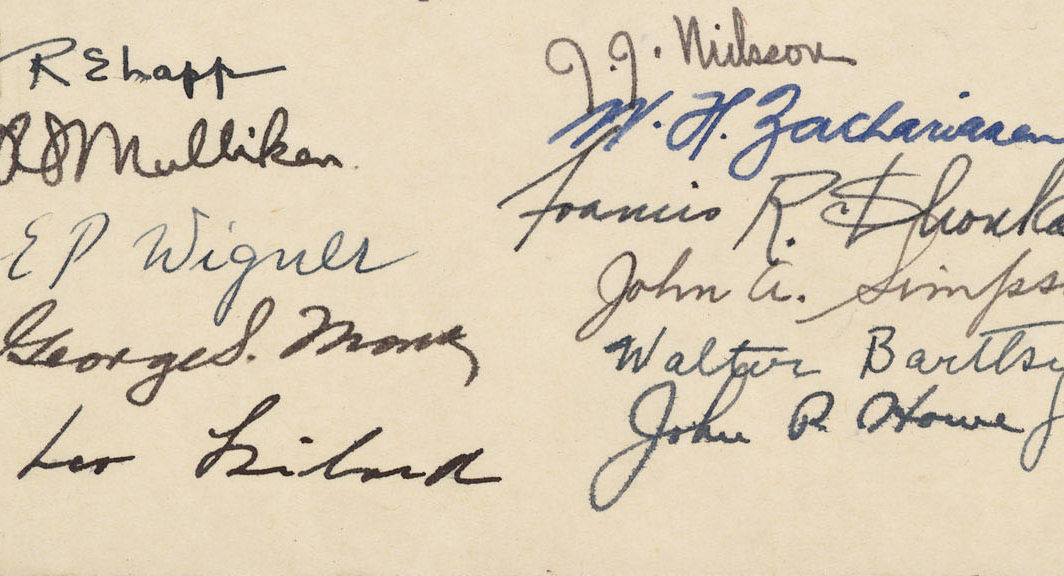 R E Lapp
R S Mulliken
E P Wigner
George S. Monk
Leo Szilard
J. J. Nickson
W. H. Zachariasen
Francis R. Shonka
John A. Simps
Walter Bartky
John P. Howe